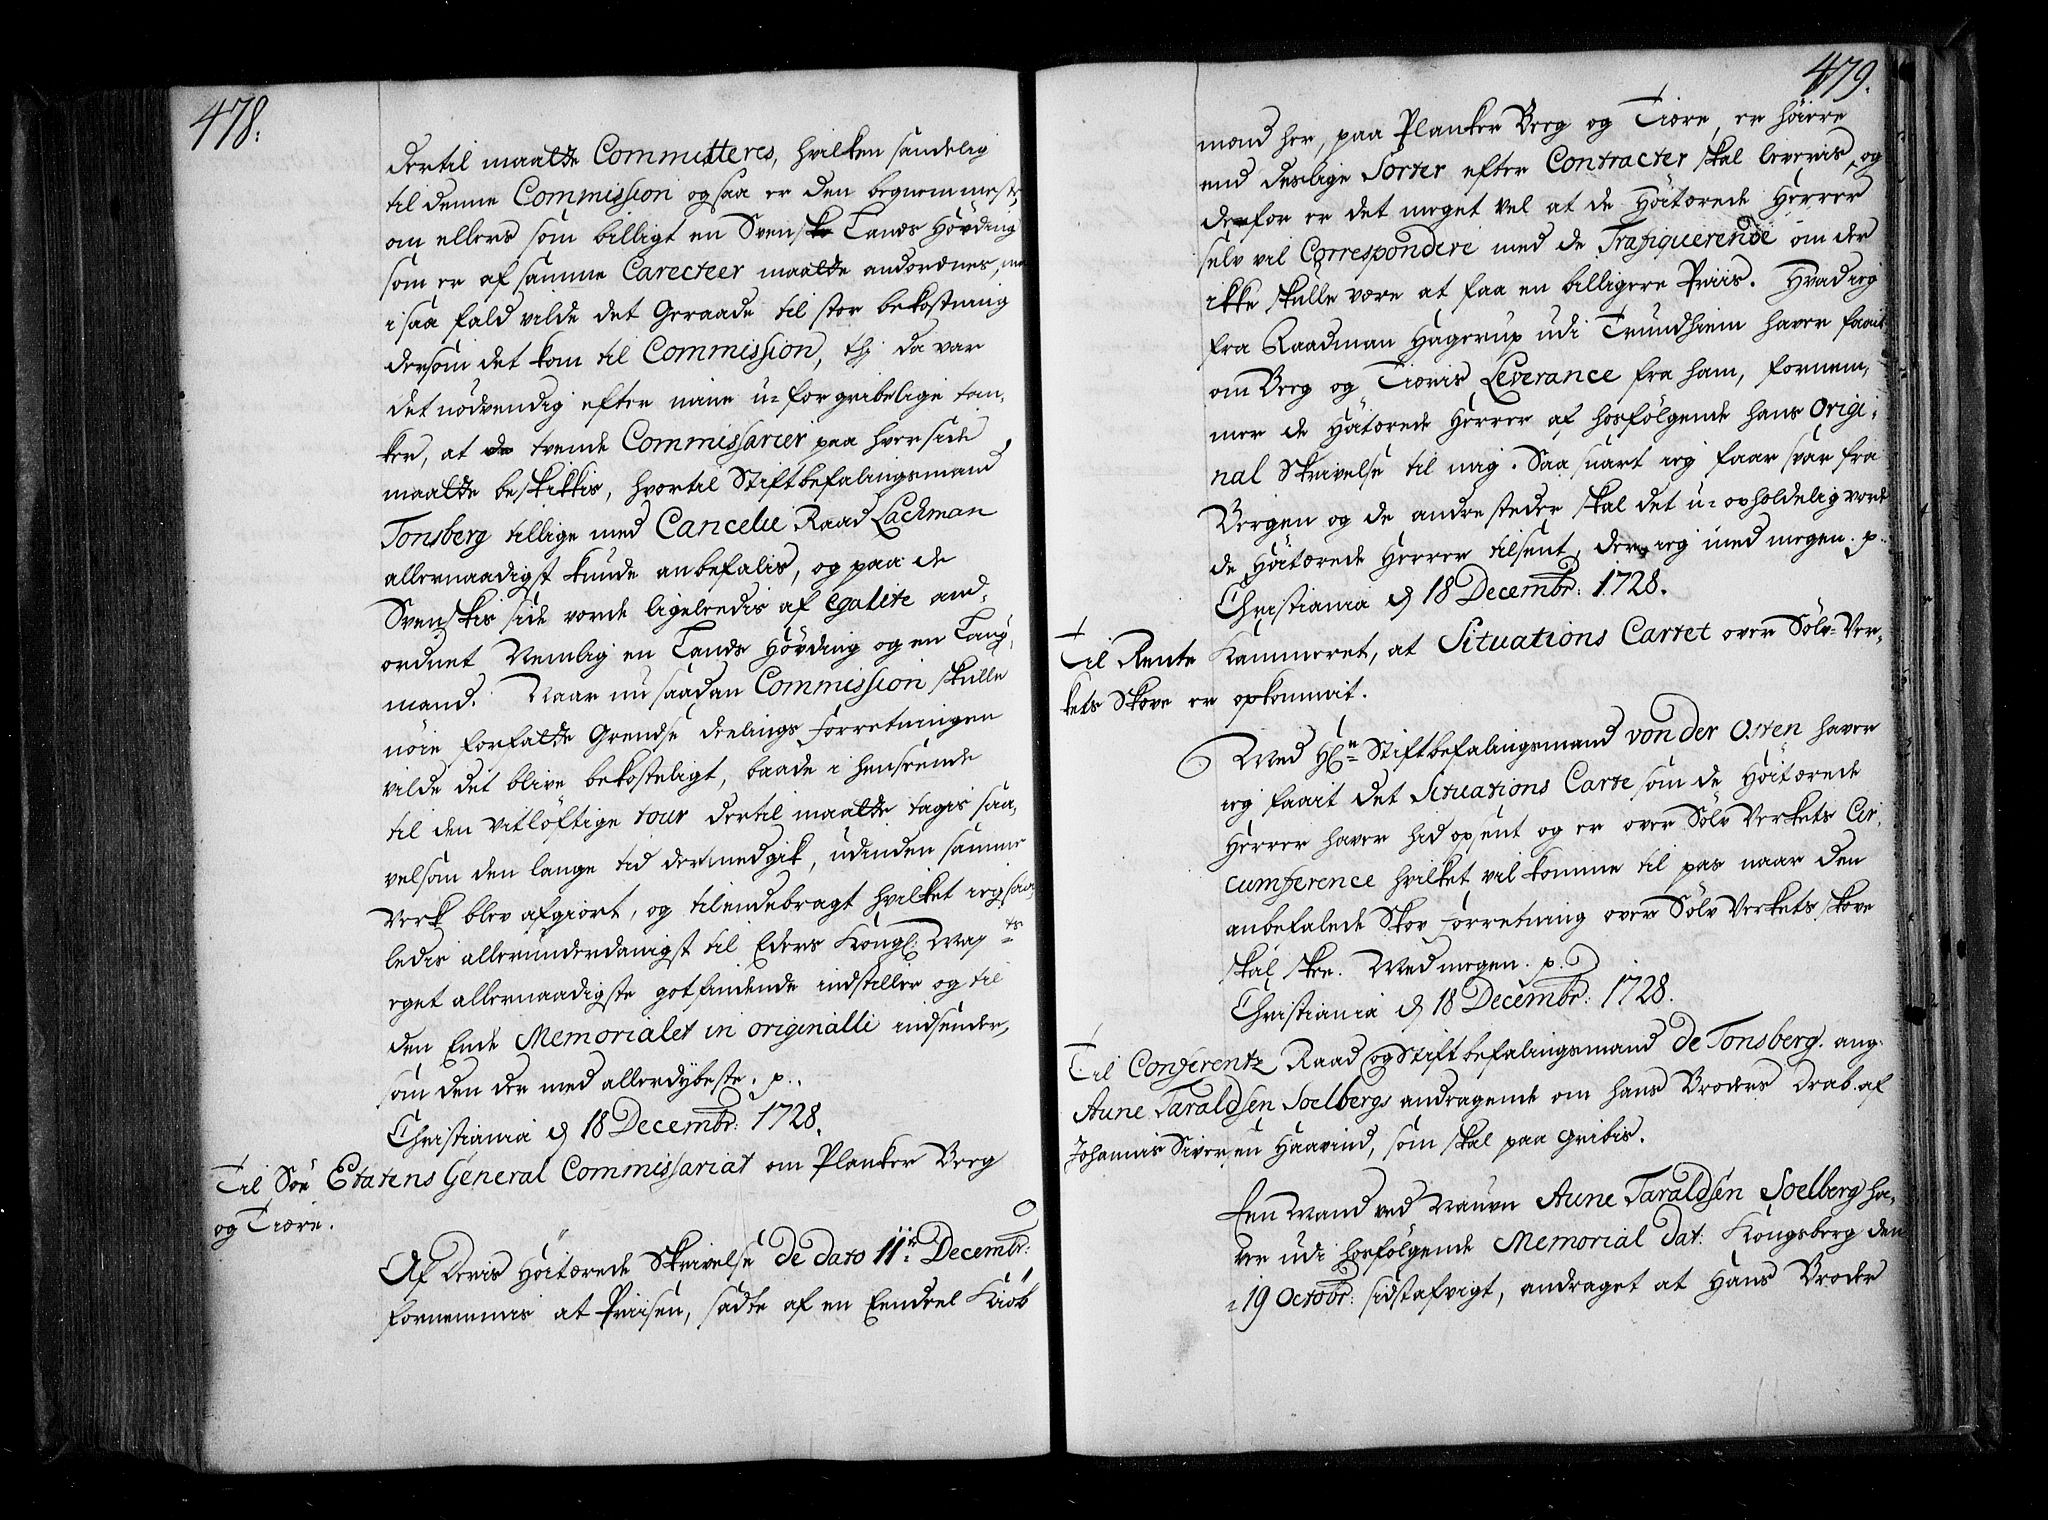 478.
dertil maatte Committeres, hvilken sandelig
til denne Commission ogsaa er den beqvemmeste,
om ellers som billigt en Svenske Lands Høvding
som er af samme Carecteer maatte andordnes, men
i saa fald vilde det Geraade til stor bekostning
dersom det kom til Commission, thj da var
det nødvendig efter mine u-forgribelige tan-
ker, at de tvende Commissarier paa hver side
maatte beskikkis, hvortil Stiftbefalingsmand
Tonsberg tillige med Cancelie Raad Lachman
allernaadigst kunde anbefalis, og paa de
Svenskis side vorde ligeledis af egalite and-
ordnet Nemlig en Lands Høvding og en Laug-
mand. Naar nu saadan Commission skulle
nøie forfatte Grendse deelings forretningen
vilde det blive bekosteligt, baade i henseende
til den vitløftige tour dertil maatte tagis saa-
velsom den lange tid dermedgik, udinden samme
Verk blev afgiort, og tilendebragt hvilket ieg saa-
ledis allerunderdanigst til Eders Kongl: May ts
eget allernaadigste gotfindende indstiller og til
den Ende Memorialet in originalli indsender,
som den der med allerdybeste. p..
Christiania d 18 Decembr: 1728.
Til Søe Etatens General Commissariat om Planker Beeg
og Tiære.
Af Deris Høitærede Skrivelse de dato 11te Decembr:
fornemmis at Priisen, sadte af en Eendeel Kiøb
479.
mænd her, paa Planker Beeg og Tiære, er høiere
end deslige Sorter efter Contracter skal leveris, og
derfor er det meget vel at de Høitærede Herrer
selv vil Correspondere med de Trafiquerende om der
ikke skulle være at faa en billigere Priis. Hvad ieg
fra Raadmand Hagerup udi Trundhiem haver faait
om Beeg og Tiæris Leverance fra ham, fornem-
mer de Høitærede Herrer af hosfølgende hans Origi-
nal Skrivelse til mig. Saa snart ieg faar svar fra
Bergen og de andre steder skal det u-opholdelig vorde
de Høitærede Herrer tilsent, der ieg med megen. p.
Christiania d 18 Decembr: 1728.
Til Rente Kammeret, at Situations Cartet over Sølv-Ver-
kets Skove er opkommit.
Med Hr Stiftbefalingsmand von der Osten haver
ieg faait det Situations Carte som de Høitærede
Herrer haver hid opsent og er over Sølv Verkets Cir-
cumference hvilket vil komme til pas naar den
anbefalede Skov forretning over Sølv Verkets skove
skal skee. Med megen. p.
Christiania d 18 Decembr: 1728.
Til Conferentz Raad og Stiftbefalingsmand de Tonsberg. ang.
Aune Taraldsen Soelbergs andragende om hans Broders Drab. af
Johannis Siversen Haavind, som skal paa Gribis.
Een Mand ved Nauvn Aune Taraldsen Soelberg ha-
ver udi hosfølgende Memorial dat: Kongsberg den
19 Octobr: sidstafvigt, andraget at Hans Broder